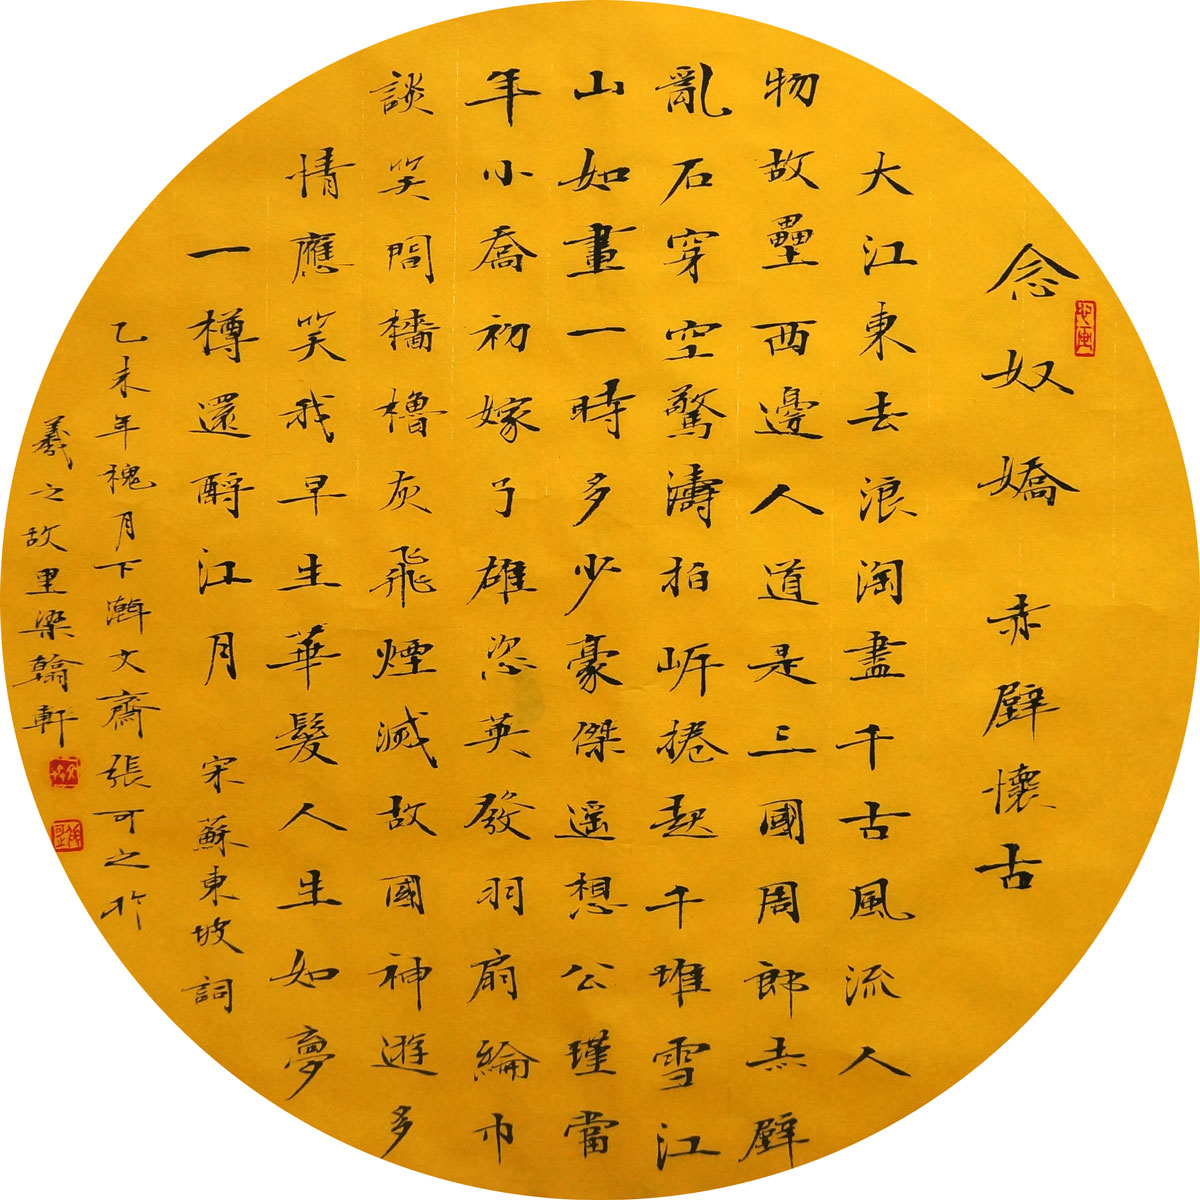 念奴嬌 赤壁懷古
大江東去浪淘盡千古風流人
物故壘西邊人道是三國周郎赤壁
亂石穿空驚濤拍岍捲起千堆雪江
山如畫一時多少豪傑遥想公瑾當
年小喬初嫁了雄姿英發羽扇綸巾
談笑間檣櫓灰飛煙滅故國神遊多
情應笑我早生華髮人生如夢
一樽還酹江月 宋蘇東坡詞
乙未年槐月下澣文齋張可之於
羲之故里梁翰軒